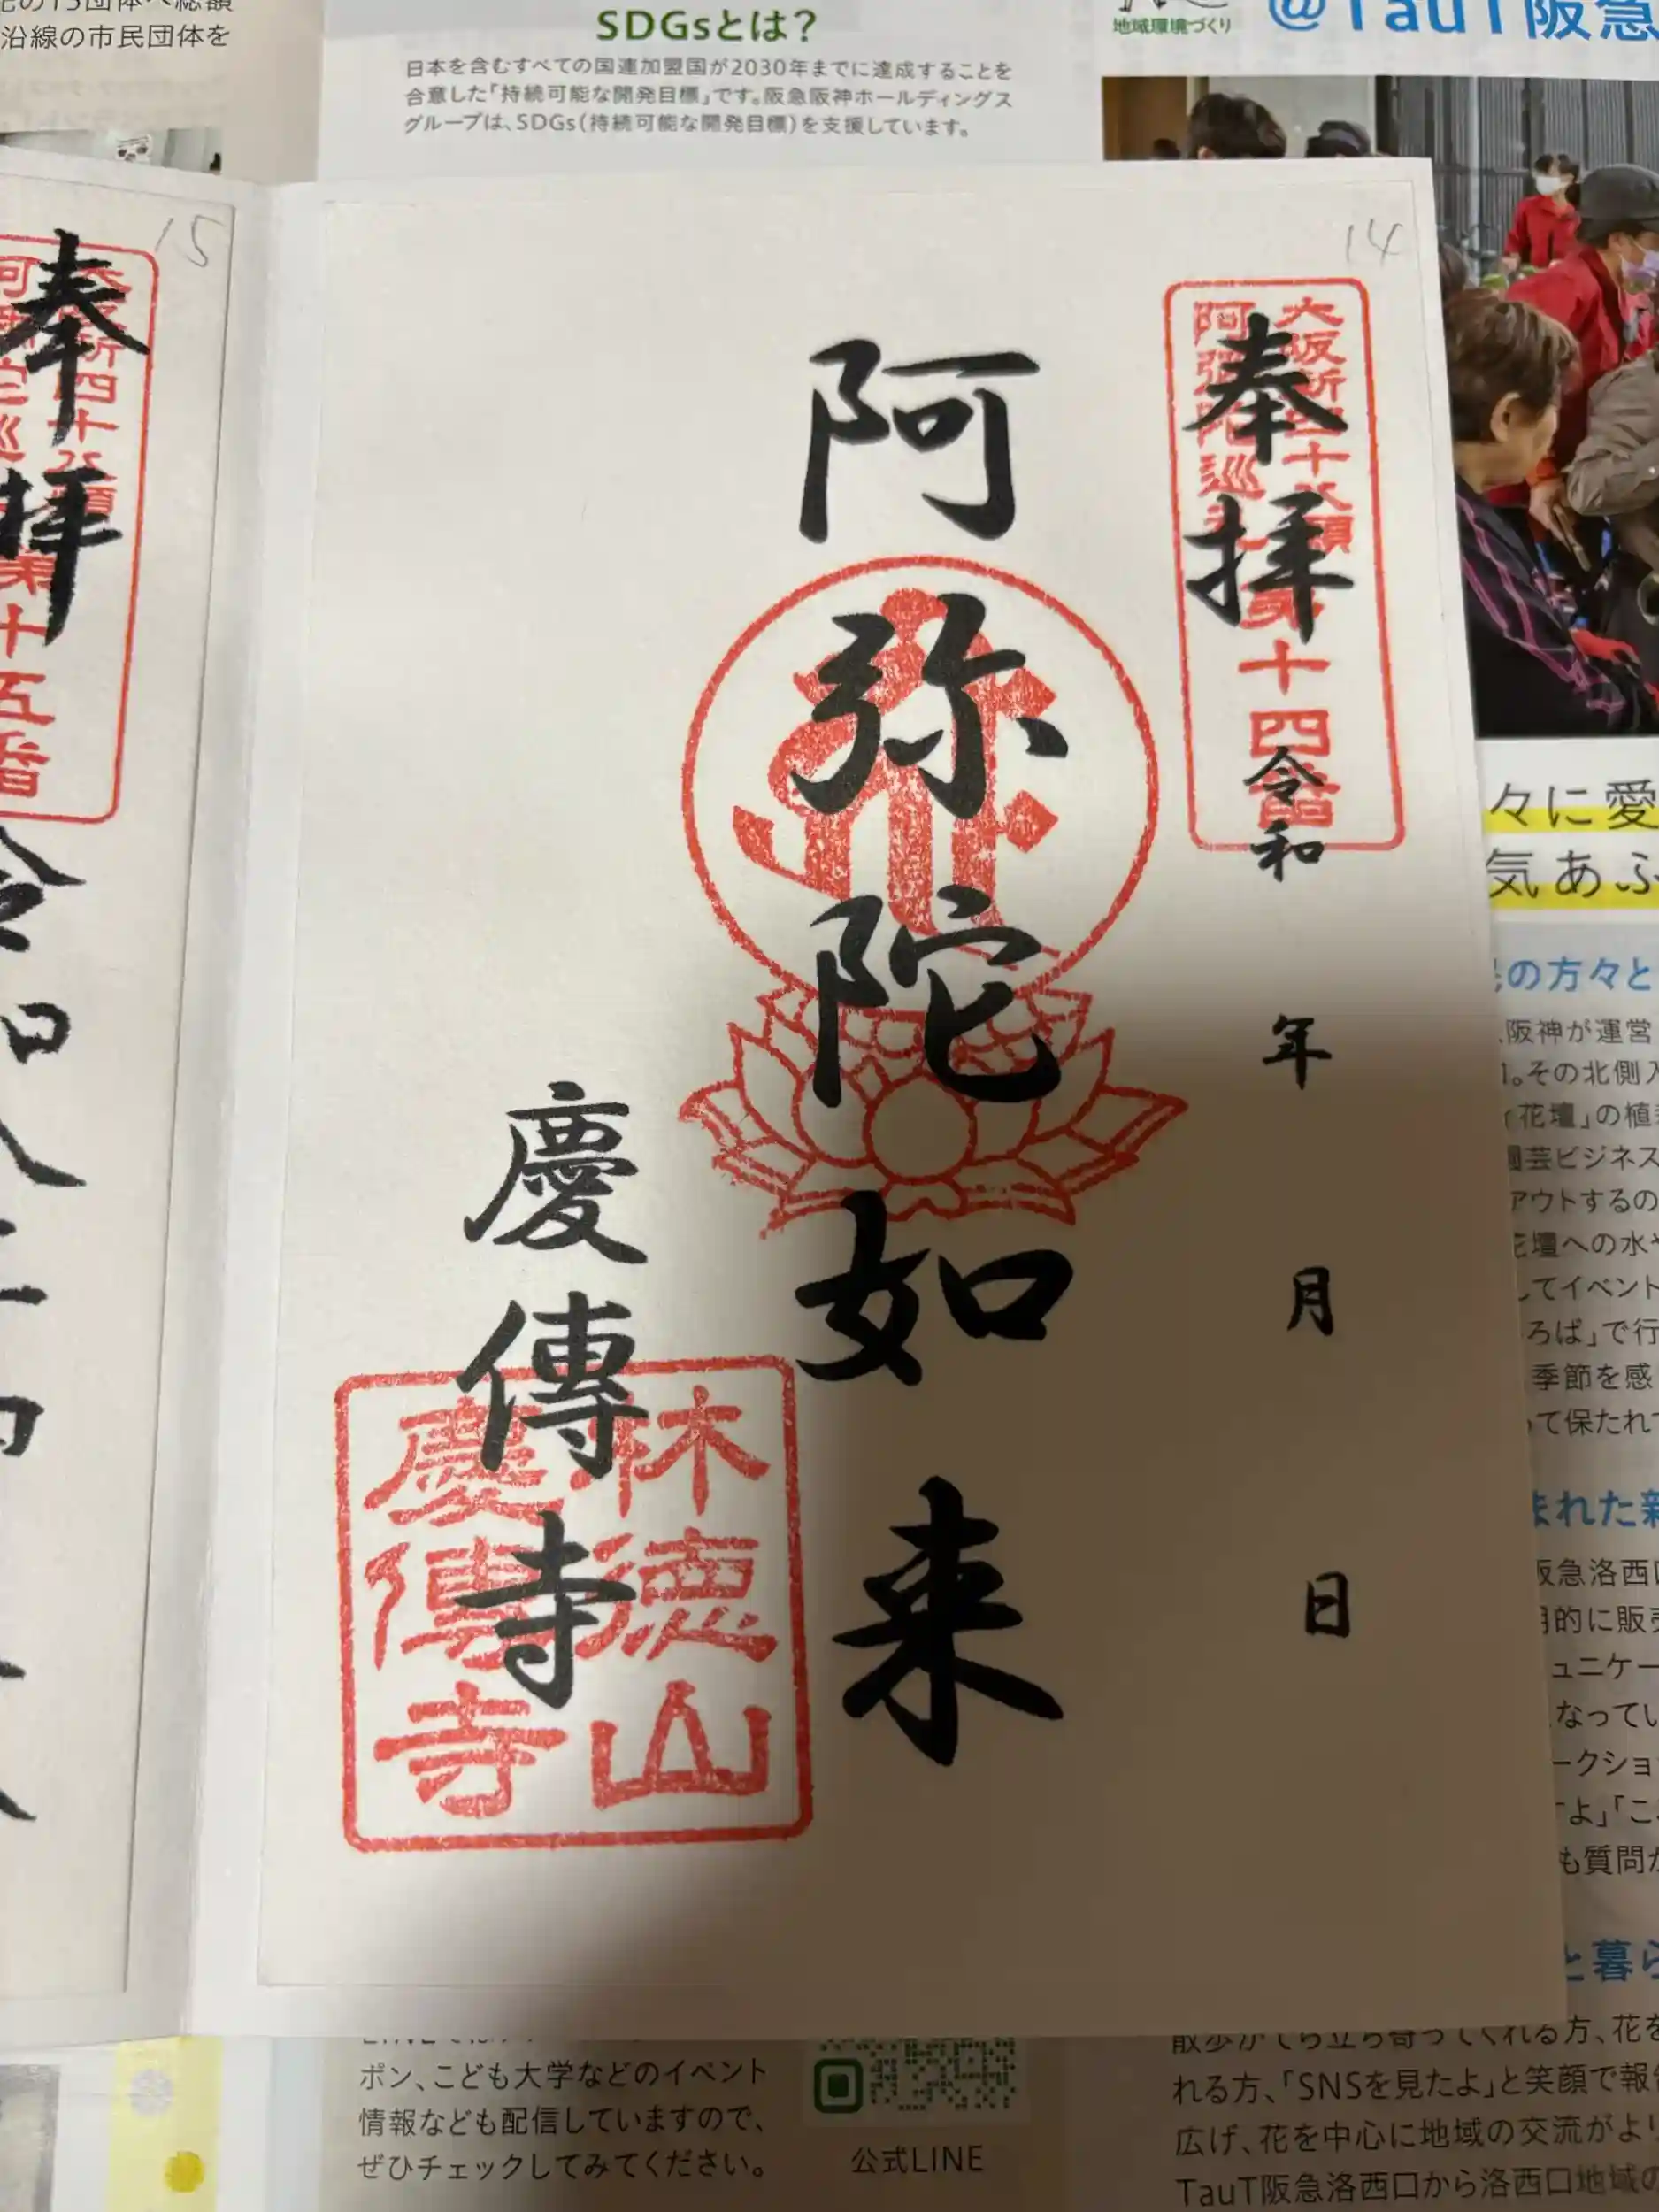 沿線の市民団体を
SDGsとは？
日本を含むすべての国連加盟国が2030年までに達成することを
合意した「持続可能な開発目標」です。阪急阪神ホールディングス
グループは、SDGs（持続可能な開発目標）を支援しています。
地域環境づくり
@TauT阪急
14
大阪新四十八願
阿弥陀巡礼
第十四番
奉拝
令和 年 月 日
阿弥陀如来
慶傳寺
林徳山
慶傳寺
15
奉拝
第十五番
々に愛
気あふ
の方々と
阪神が運営
。その北側入
花壇」の植
園芸ビジネス
アウトするの
花壇への水や
してイベント
ろば」で行
季節を感
て保たれて
まれた新
阪急洛西口
的に販売
ュニケー
なってい
ークショ
すよ」「こ
も質問が
と暮ら
ポン、こども大学などのイベント
情報なども配信していますので、
ぜひチェックしてみてください。
公式LINE
散歩がてら立ち寄ってくれる方、花を
れる方、「SNSを見たよ」と笑顔で報告
広げ、花を中心に地域の交流がより
TauT阪急洛西口から洛西口地域の